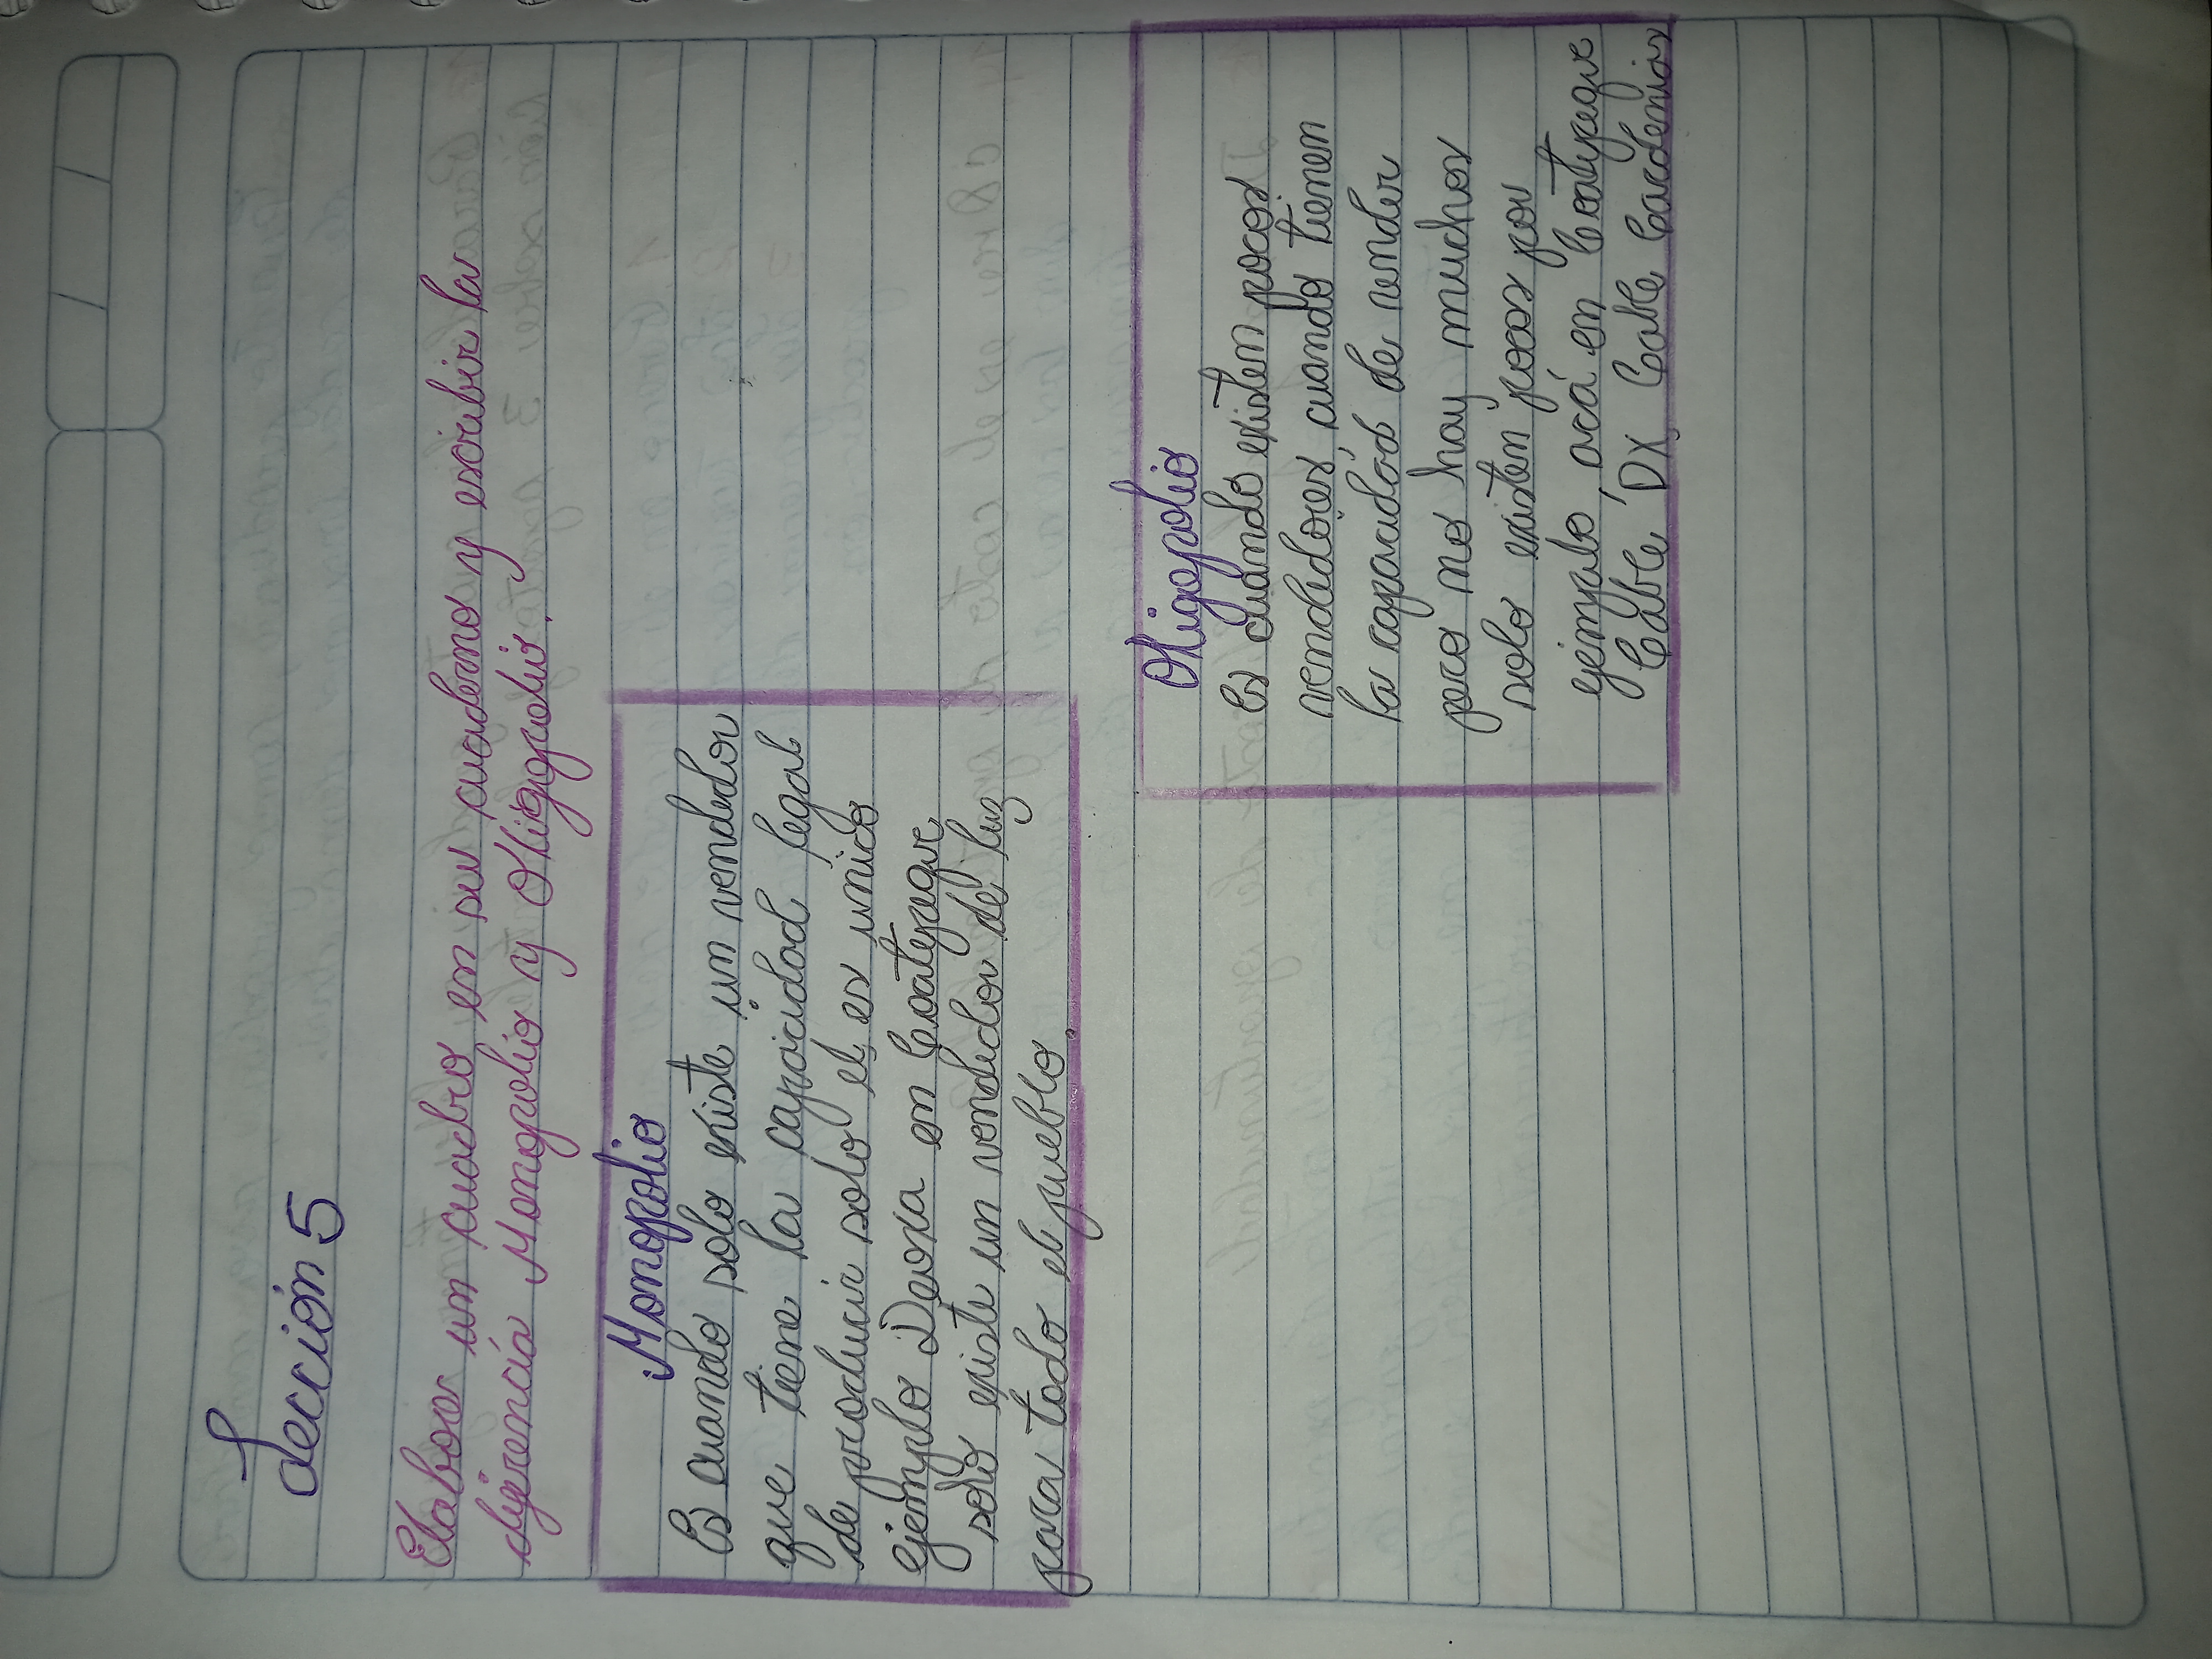 Lección 5
Elaborar un cuadro en su cuaderno y escribir la
diferencia Monopolio y Oligopolio.
Monopolio
Es cuando solo existe un vendedor
que tiene la capacidad legal
de producir solo el es unico
ejemplo Deoxa en Coatepeque
solo existe un vendedor de luz
para todo el pueblo.
Oligopolio
Es cuando existen pocos
vendedores cuando tienen
la capacidad de vender
pero no hay muchos
solo existen pocos por
ejemplo, acá en Coatepeque
Cable Dx, Cable Cardenias